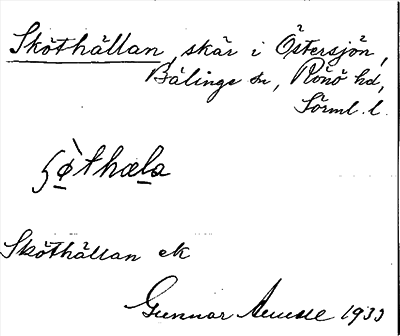 Sköthällan, skär i Östersjön,
Bälinge sn, Rönö hd,
Sörml. l.
ʃø̀thæla
Sköthällan ek
Gunnar 1933